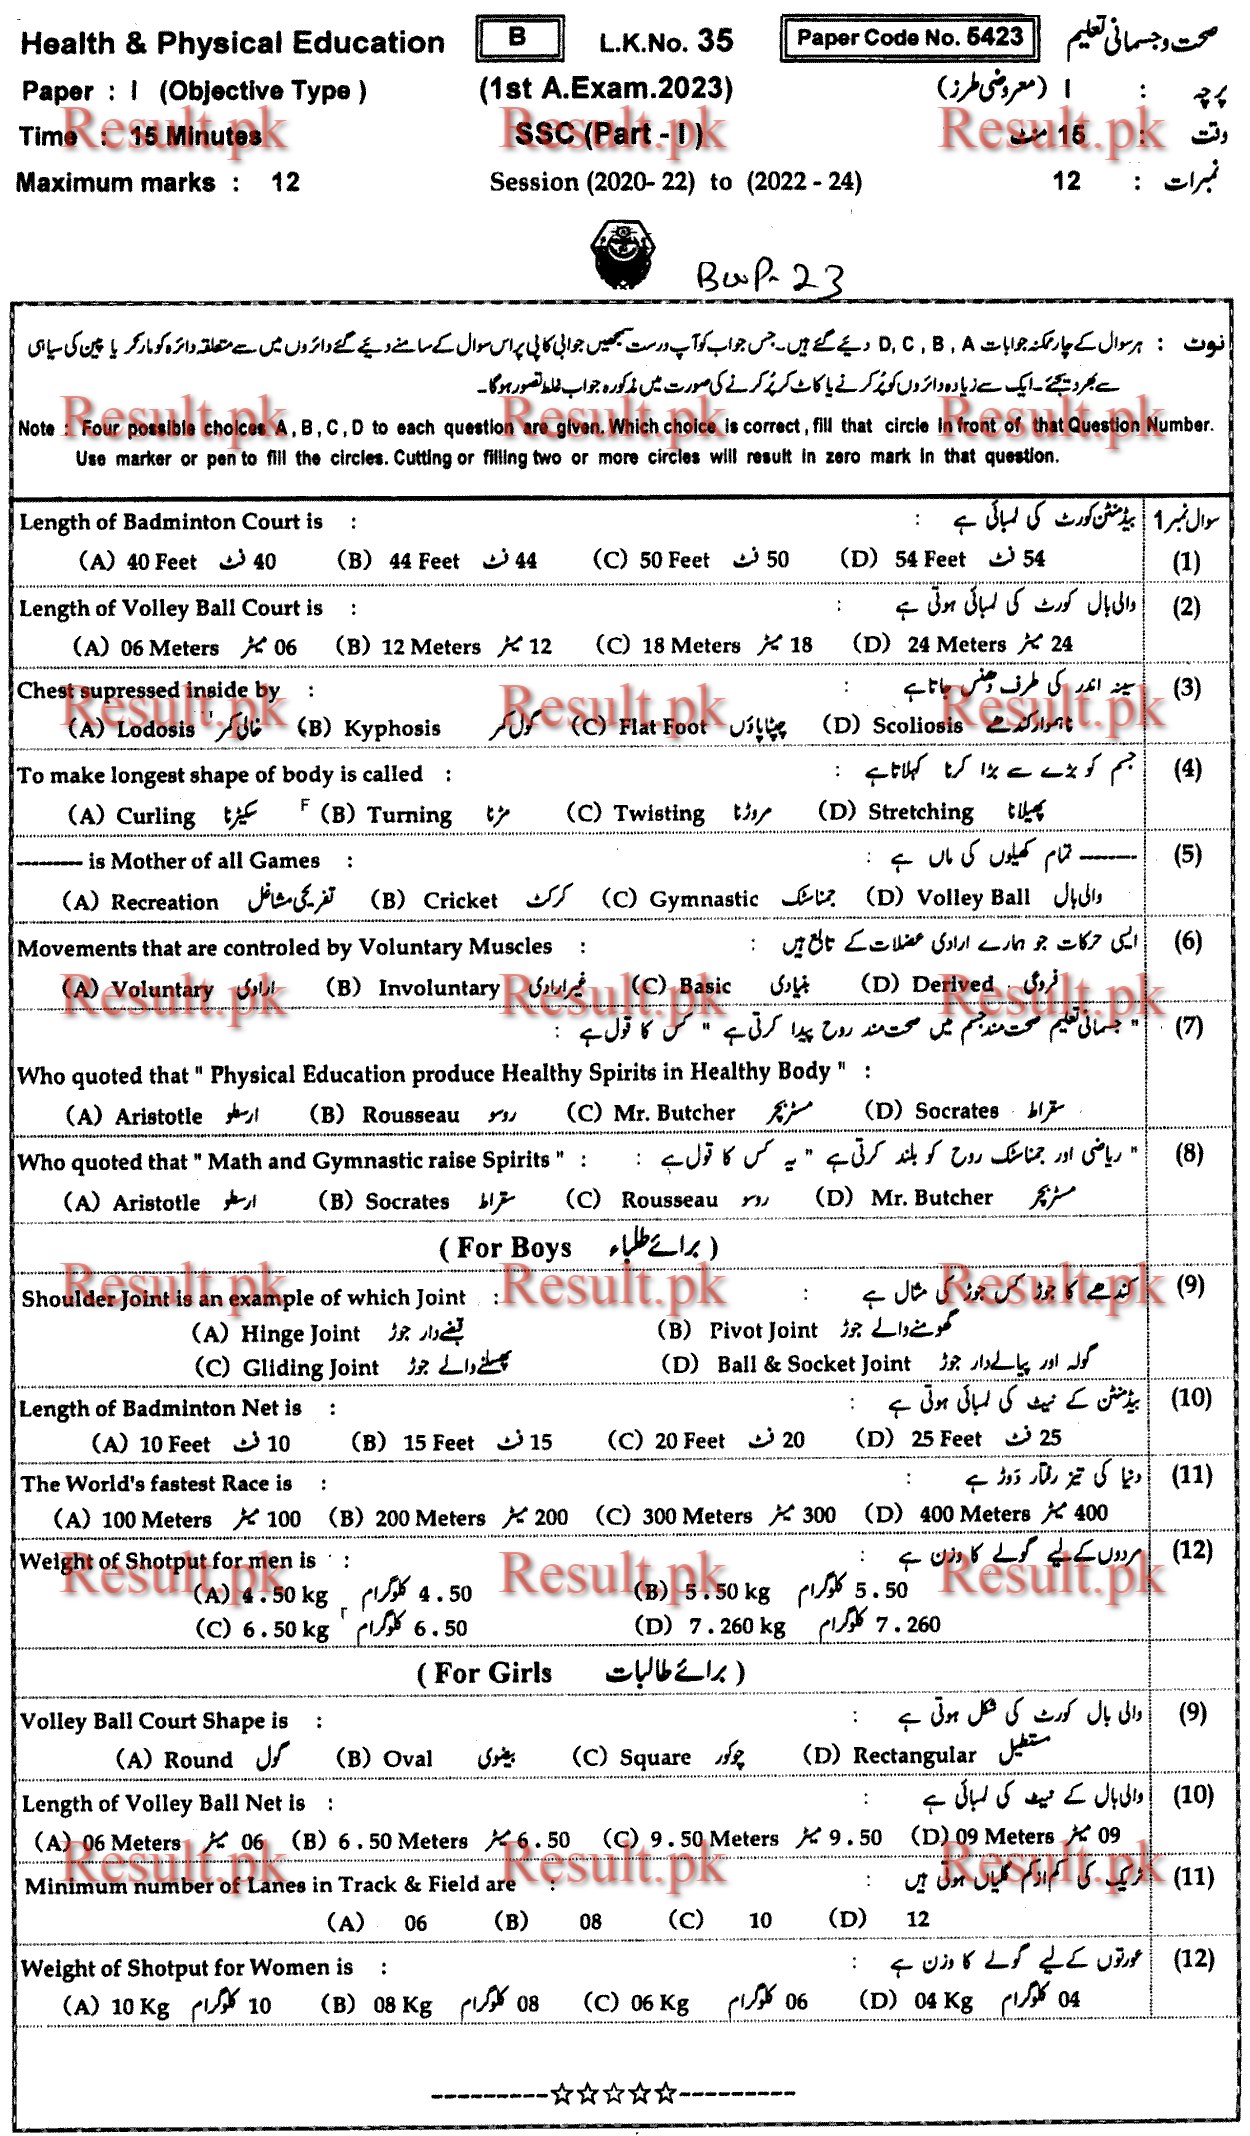 Health & Physical Education B L.K.No. 35 Paper Code No. 5423 صحت و جسمانی تعلیم
Paper : I (Objective Type) (1st A.Exam.2023) پرچہ : I (معروضی طرز)
Time : 15 Minutes SSC (Part - I) وقت : 15 منٹ
Maximum marks : 12 Session (2020- 22) to (2022 - 24) نمبرات : 12
BWP-23
نوٹ : ہر سوال کے چار ممکنہ جوابات D , C , B , A دیے گئے ہیں۔ جس جواب کو آپ درست سمجھیں جوابی کاپی پر اس سوال کے سامنے دیئے گئے دائروں میں سے متعلقہ دائرہ کو مارکر یا پین کی سیاہی
سے بھر دیجئے۔ ایک سے زیادہ دائروں کو پُر کرنے یا کاٹ کر پُر کرنے کی صورت میں مذکورہ جواب غلط تصور ہوگا۔
Note : Four possible choices A , B , C , D to each question are given. Which choice is correct , fill that circle in front of that Question Number.
Use marker or pen to fill the circles. Cutting or filling two or more circles will result in zero mark in that question.
Length of Badminton Court is : بیڈمنٹن کورٹ کی لمبائی ہے : سوال نمبر 1
(A) 40 Feet 40 فٹ (B) 44 Feet 44 فٹ (C) 50 Feet 50 فٹ (D) 54 Feet 54 فٹ (1)
Length of Volley Ball Court is : والی بال کورٹ کی لمبائی ہوتی ہے : (2)
(A) 06 Meters 06 میٹر (B) 12 Meters 12 میٹر (C) 18 Meters 18 میٹر (D) 24 Meters 24 میٹر
Chest supressed inside by : سینہ اندر کی طرف دھنس جاتا ہے : (3)
(A) Lodosis خالی کمر (B) Kyphosis گول کمر (C) Flat Foot چپٹا پاؤں (D) Scoliosis ناہموار کندھے
To make longest shape of body is called : جسم کو بڑے سے بڑا کرنا کہلاتا ہے : (4)
(A) Curling سکیڑنا (B) Turning مڑنا (C) Twisting مروڑنا (D) Stretching پھیلانا
——— is Mother of all Games : ——— تمام کھیلوں کی ماں ہے : (5)
(A) Recreation تفریحی مشاغل (B) Cricket کرکٹ (C) Gymnastic جمناسٹک (D) Volley Ball والی بال
Movements that are controled by Voluntary Muscles : ایسی حرکات جو ہمارے ارادی عضلات کے تابع ہیں : (6)
(A) Voluntary ارادی (B) Involuntary غیر ارادی (C) Basic بنیادی (D) Derived فروعی
" جسمانی تعلیم صحت مند جسم میں صحت مند روح پیدا کرتی ہے " کس کا قول ہے : (7)
Who quoted that " Physical Education produce Healthy Spirits in Healthy Body " :
(A) Aristotle ارسطو (B) Rousseau روسو (C) Mr. Butcher مسٹر بچر (D) Socrates سقراط
Who quoted that " Math and Gymnastic raise Spirits " : " ریاضی اور جمناسٹک روح کو بلند کرتی ہے " یہ کس کا قول ہے : (8)
(A) Aristotle ارسطو (B) Socrates سقراط (C) Rousseau روسو (D) Mr. Butcher مسٹر بچر
( For Boys برائے طلباء )
Shoulder Joint is an example of which Joint : کندھے کا جوڑ کس جوڑ کی مثال ہے : (9)
(A) Hinge Joint قبضے دار جوڑ (B) Pivot Joint گھومنے والے جوڑ
(C) Gliding Joint پھسلنے والے جوڑ (D) Ball & Socket Joint گولہ اور پیالے دار جوڑ
Length of Badminton Net is : بیڈمنٹن کے نیٹ کی لمبائی ہوتی ہے : (10)
(A) 10 Feet 10 فٹ (B) 15 Feet 15 فٹ (C) 20 Feet 20 فٹ (D) 25 Feet 25 فٹ
The World's fastest Race is : دنیا کی تیز رفتار دوڑ ہے : (11)
(A) 100 Meters 100 میٹر (B) 200 Meters 200 میٹر (C) 300 Meters 300 میٹر (D) 400 Meters 400 میٹر
Weight of Shotput for men is : مردوں کے لیے گولے کا وزن ہے : (12)
(A) 4 . 50 kg 4 . 50 کلوگرام (B) 5 . 50 kg 5 . 50 کلوگرام
(C) 6 . 50 kg 6 . 50 کلوگرام (D) 7 . 260 kg 7 . 260 کلوگرام
( For Girls برائے طالبات )
Volley Ball Court Shape is : والی بال کورٹ کی شکل ہوتی ہے : (9)
(A) Round گول (B) Oval بیضوی (C) Square چوکور (D) Rectangular مستطیل
Length of Volley Ball Net is : والی بال کے نیٹ کی لمبائی ہے : (10)
(A) 06 Meters 06 میٹر (B) 6 . 50 Meters 6 . 50 میٹر (C) 9 . 50 Meters 9 . 50 میٹر (D) 09 Meters 09 میٹر
Minimum number of Lanes in Track & Field are : ٹریک کی کم از کم گلیاں ہوتی ہیں : (11)
(A) 06 (B) 08 (C) 10 (D) 12
Weight of Shotput for Women is : عورتوں کے لیے گولے کا وزن ہے : (12)
(A) 10 Kg 10 کلوگرام (B) 08 Kg 08 کلوگرام (C) 06 Kg 06 کلوگرام (D) 04 Kg 04 کلوگرام
Result.pk Result.pk Result.pk
Result.pk Result.pk Result.pk
Result.pk Result.pk Result.pk
Result.pk Result.pk Result.pk
Result.pk Result.pk Result.pk
Result.pk Result.pk Result.pk
Result.pk Result.pk Result.pk